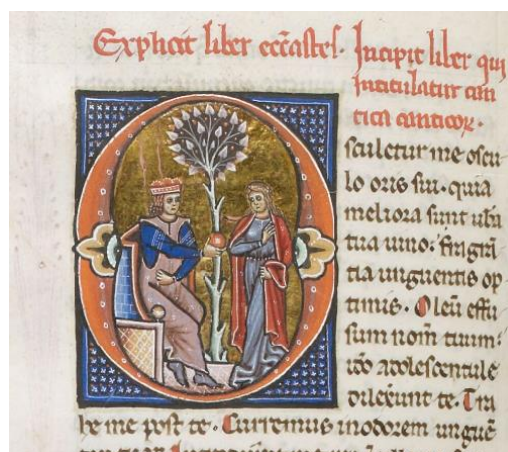 Explicit liber eccastes. Incipit liber qui
intitulatur can
tica canticor.
O
sculetur me oscu
lo oris sui. quia
meliora sunt ube
tua uino. fragran
tia unguentis op
timis. Oleu effu
sum nom tuum.
ideo adolescentule
dilexerunt te. Tra
he me post te. Curremus in odorem ungue